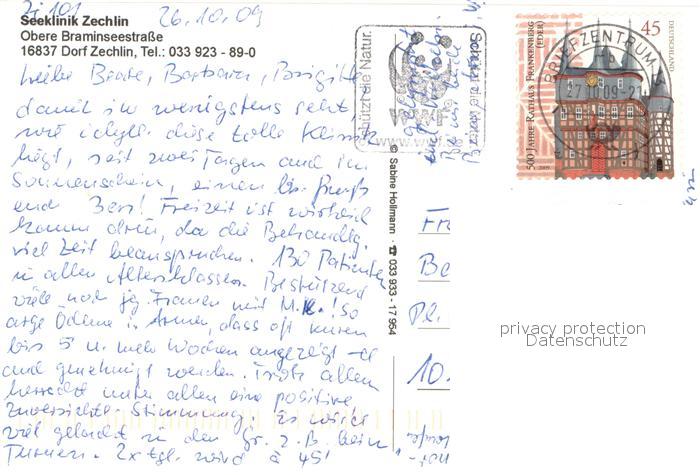 Zi 101
26.10.09
Seeklinik Zechlin
Obere Braminseestraße
16837 Dorf Zechlin, Tel.: 033 923 - 89-0
Liebe Beate, Barbara, Brigitte
damit ihr wenigstens seht,
wie idyll. diese tolle Klinik
liegt, seit zwei Tagen auch im
Sonnenschein, einen lb. Gruß
und Freizeit ist wirklich
kaum drin, da die Behandlg.
viel Zeit beanspruchen. 130 Patienten
in allen Altersklassen. Bestürzend
viele noch jg. Frauen mit M.K.! So
arge Ödeme i. Armen, dass oft kuren
bis 5 u. mehr Wochen angezeigt
und genehmigt werden. Trotz allem
herrscht unter allen eine positive
zuversichtl. Stimmung. Es wird
viel gelacht in den Gr. z.B. beim
Turnen. 2x tgl. wird à 45'
Schützt die Natur.
WWF
© Sabine Hollmann · ☎ 033 933 - 17 954
500 JAHRE RATHAUS FRANKENBERG
(EDER)
45
DEUTSCHLAND
BRIEFZENTRUM
27.10.09-21
Fr
Be
Pl.
10.
privacy protection
Datenschutz